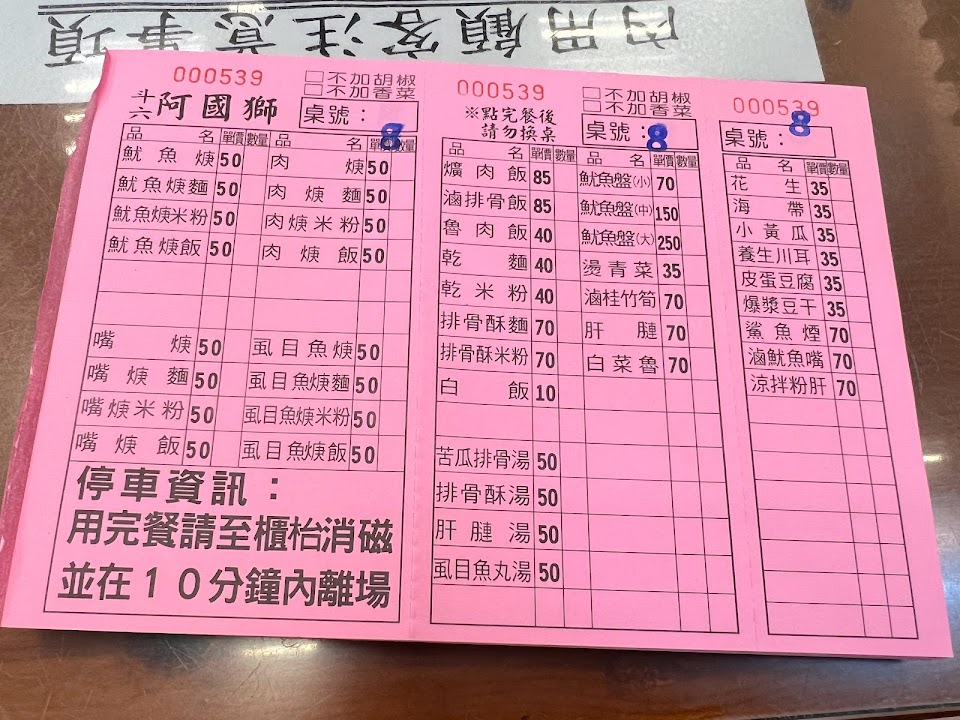 內用顧客注意事項
000539
□不加胡椒
□不加香菜
斗六 阿國獅
桌號： 8
品名 單價 數量 品名 單價 數量
魷魚焿 50 肉焿 50
魷魚焿麵 50 肉焿麵 50
魷魚焿米粉 50 肉焿米粉 50
魷魚焿飯 50 肉焿飯 50
嘴焿 50 虱目魚焿 50
嘴焿麵 50 虱目魚焿麵 50
嘴焿米粉 50 虱目魚焿米粉 50
嘴焿飯 50 虱目魚焿飯 50
停車資訊：
用完餐請至櫃枱消磁
並在１０分鐘內離場
000539
□不加胡椒
□不加香菜
※點完餐後
請勿換桌
桌號： 8
品名 單價 數量 品名 單價 數量
爌肉飯 85 魷魚盤(小) 70
滷排骨飯 85 魷魚盤(中) 150
魯肉飯 40 魷魚盤(大) 250
乾麵 40 燙青菜 35
乾米粉 40 滷桂竹筍 70
排骨酥麵 70 肝膥 70
排骨酥米粉 70 白菜魯 70
白飯 10
苦瓜排骨湯 50
排骨酥湯 50
肝膥湯 50
虱目魚丸湯 50
000539
桌號： 8
品名 單價 數量
花生 35
海帶 35
小黃瓜 35
養生川耳 35
皮蛋豆腐 35
爆漿豆干 35
鯊魚煙 70
滷魷魚嘴 70
涼拌粉肝 70